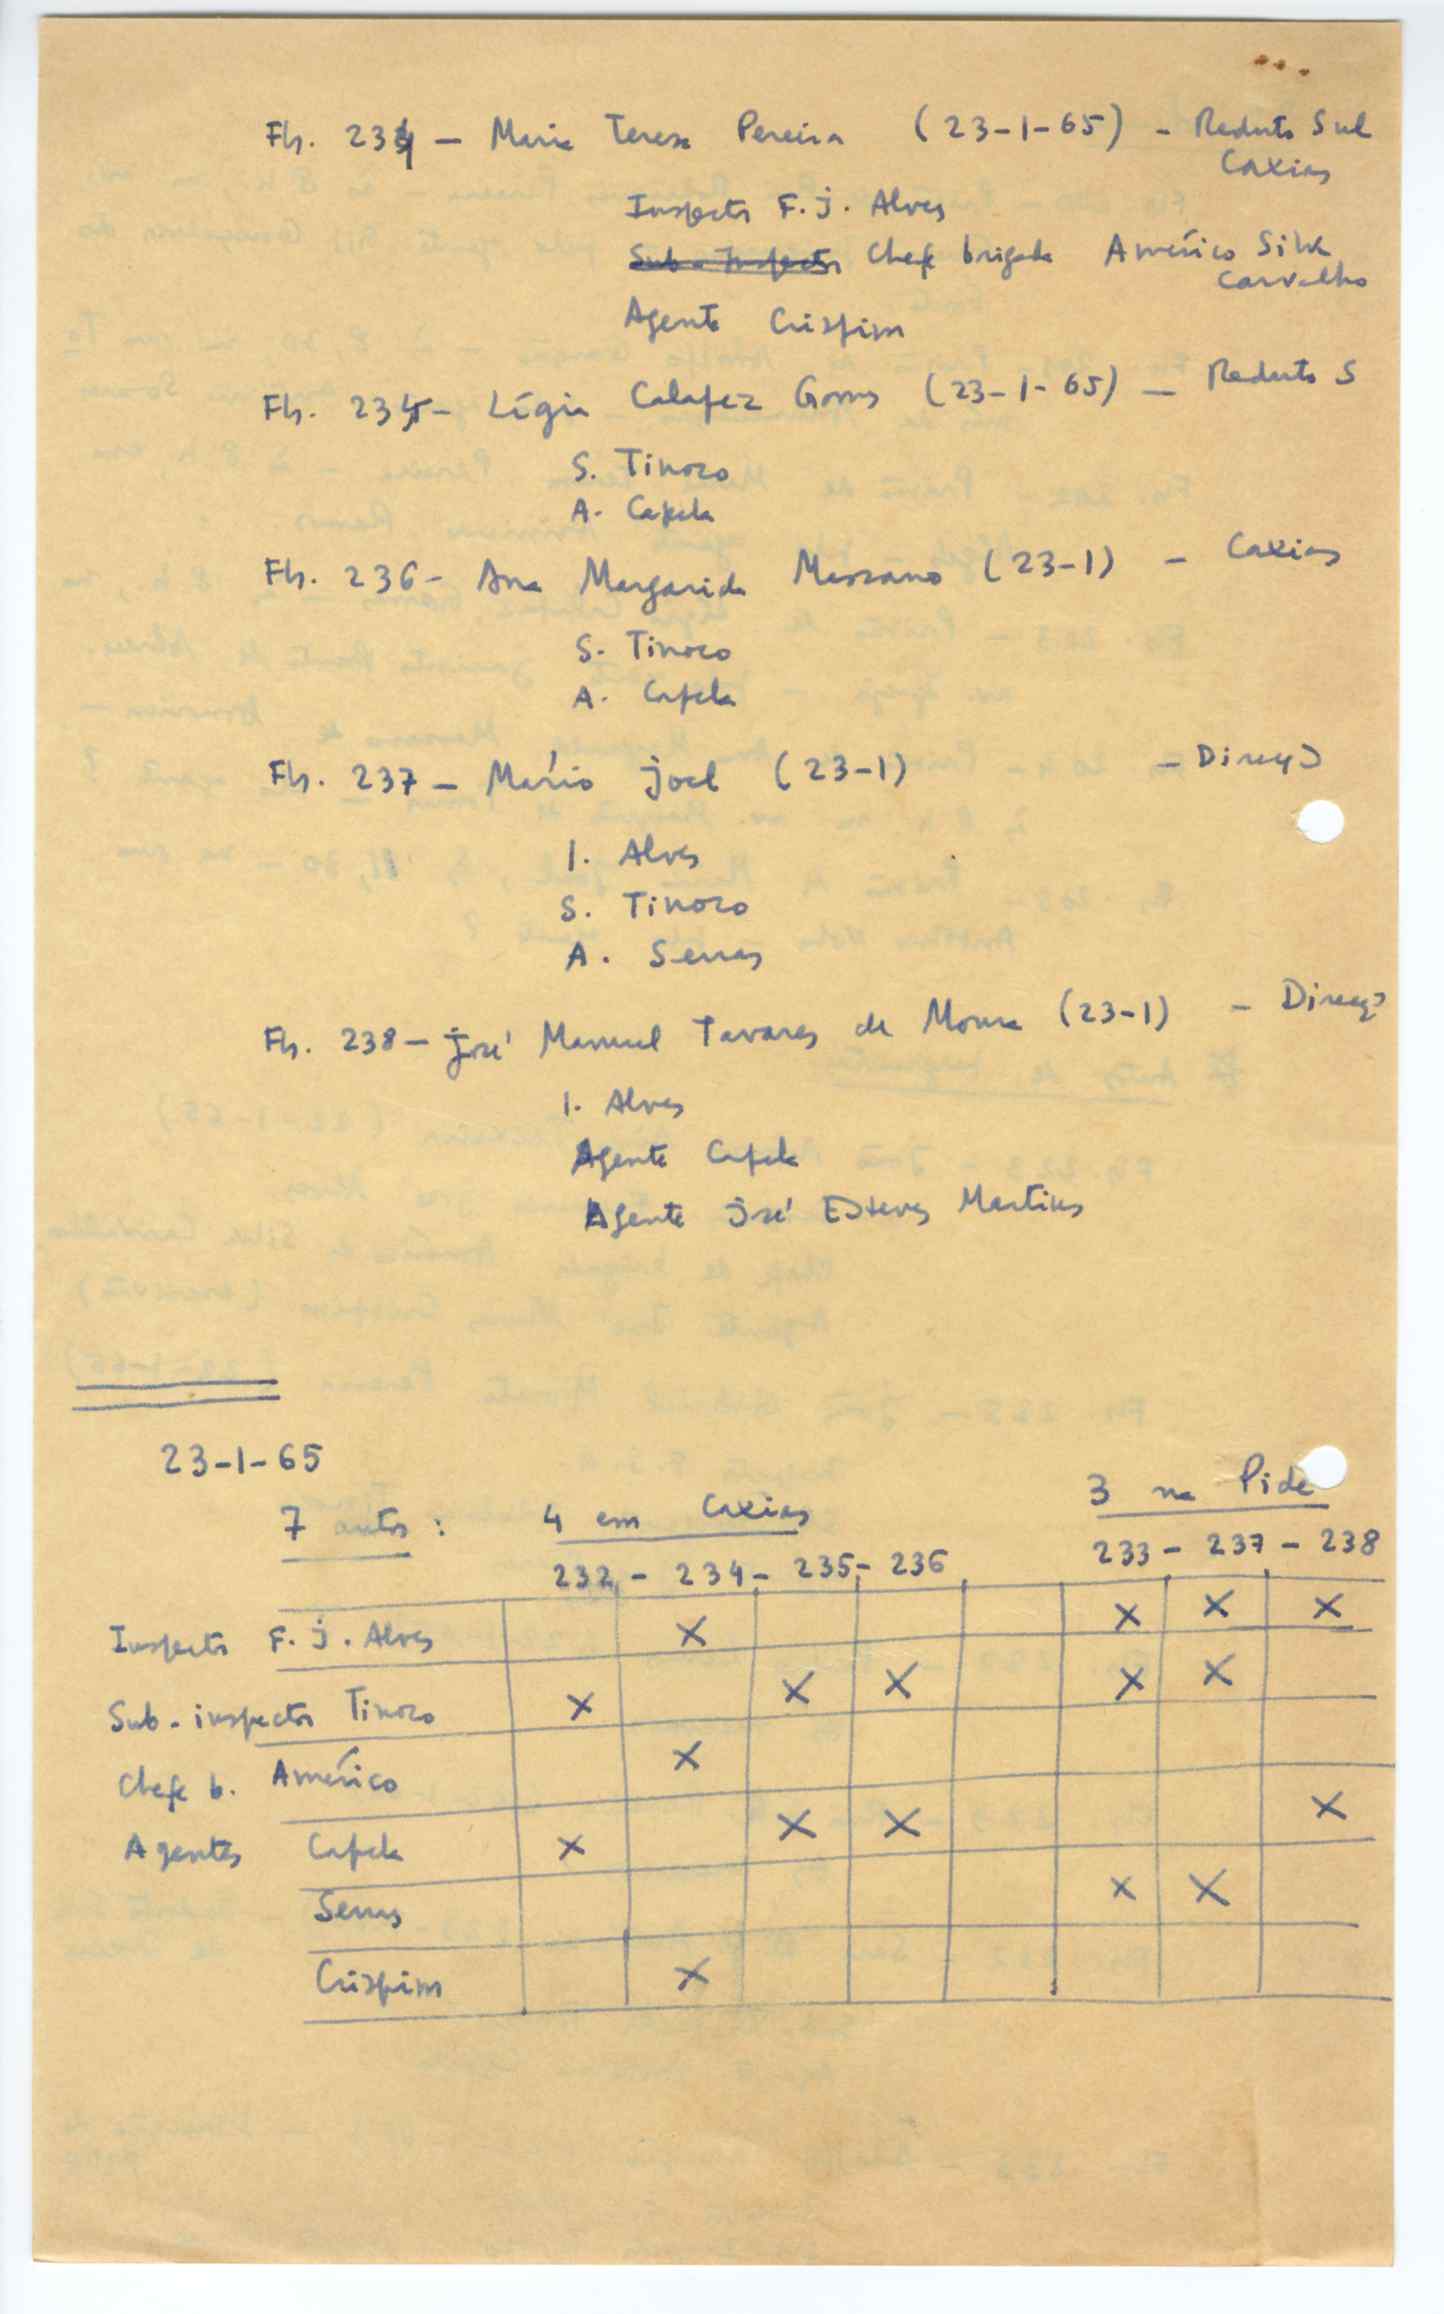 Fls. 234 — Maria Teresa Pereira (23-1-65) - Reduto Sul
Caxias
Inspector F. J. Alves
Sub-Inspector Chefe brigada Américo Silva
Carvalho
Agente Crispim
Fls. 235 - Lígia Calapez Gomes (23-1-65) — Reduto S
S. Tinoco
A. Capela
Fls. 236 - Ana Margarida Marzano (23-1) - Caxias
S. Tinoco
A. Capela
Fls. 237 - Mário Joel (23-1) - Direcç
I. Alves
S. Tinoco
A. Serras
Fls. 238 - José Manuel Tavares de Moura (23-1) - Direcç
I. Alves
Agente Capela
Agente José Esteves Martins
23-1-65
7 autos : 4 em Caxias 3 na Pide
232 - 234 - 235 - 236 233 - 237 - 238
Inspector F. J. Alves X X X X
Sub-inspector Tinoco X X X X X
Chefe b. Américo X
Agentes Capela X X X X
Serras X X
Crispim X